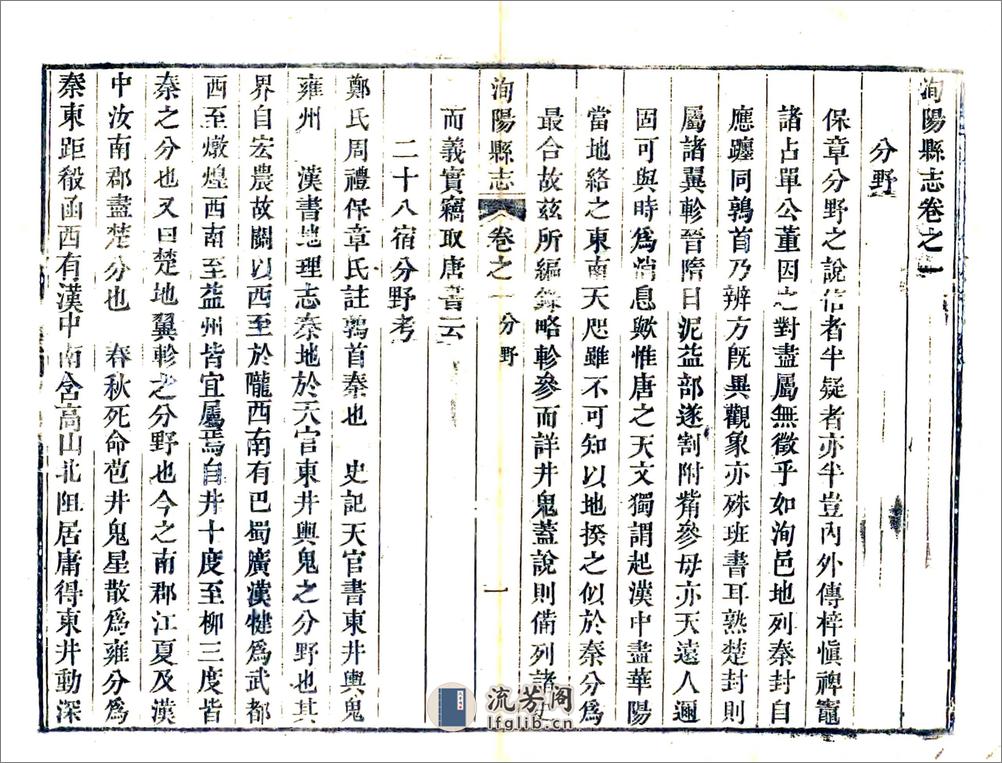 洵陽縣志卷之一
分野
保章分野之說信者半疑者亦半豈內外傳梓愼禆竈
諸占單公董因之對盡屬無徵乎如洵邑地列秦封自
應躔同鶉首乃辨方旣異觀象亦殊班書耳熟楚封則
屬諸翼軫晉隋日泥益部遂割附觜參毋亦天遠人邇
固可與時爲消息歟惟唐之天文獨謂起漢中盡華陽
當地絡之東南天咫雖不可知以地揆之似於秦分爲
最合故兹所編錄略軫參而詳井鬼蓋說則備列諸
洵陽縣志 卷之一 分野 一
而義實竊取唐書云
二十八宿分野考
鄭氏周禮保章氏註鶉首秦也 史記天官書東井輿鬼
雍州 漢書地理志秦地於天官東井輿鬼之分野也其
界自宏農故關以西至於隴西南有巴蜀廣漢犍爲武都
西至燉煌西南至益州皆宜屬焉自井十度至柳三度皆
秦之分也又曰楚地翼軫之分野也今之南郡江夏及漢
中汝南郡盡楚分也 春秋死命苞井鬼星散爲雍分爲
秦東距殽函西有漢中南含高山北阻居庸得東井動深
流芳阁
lfglib.cn